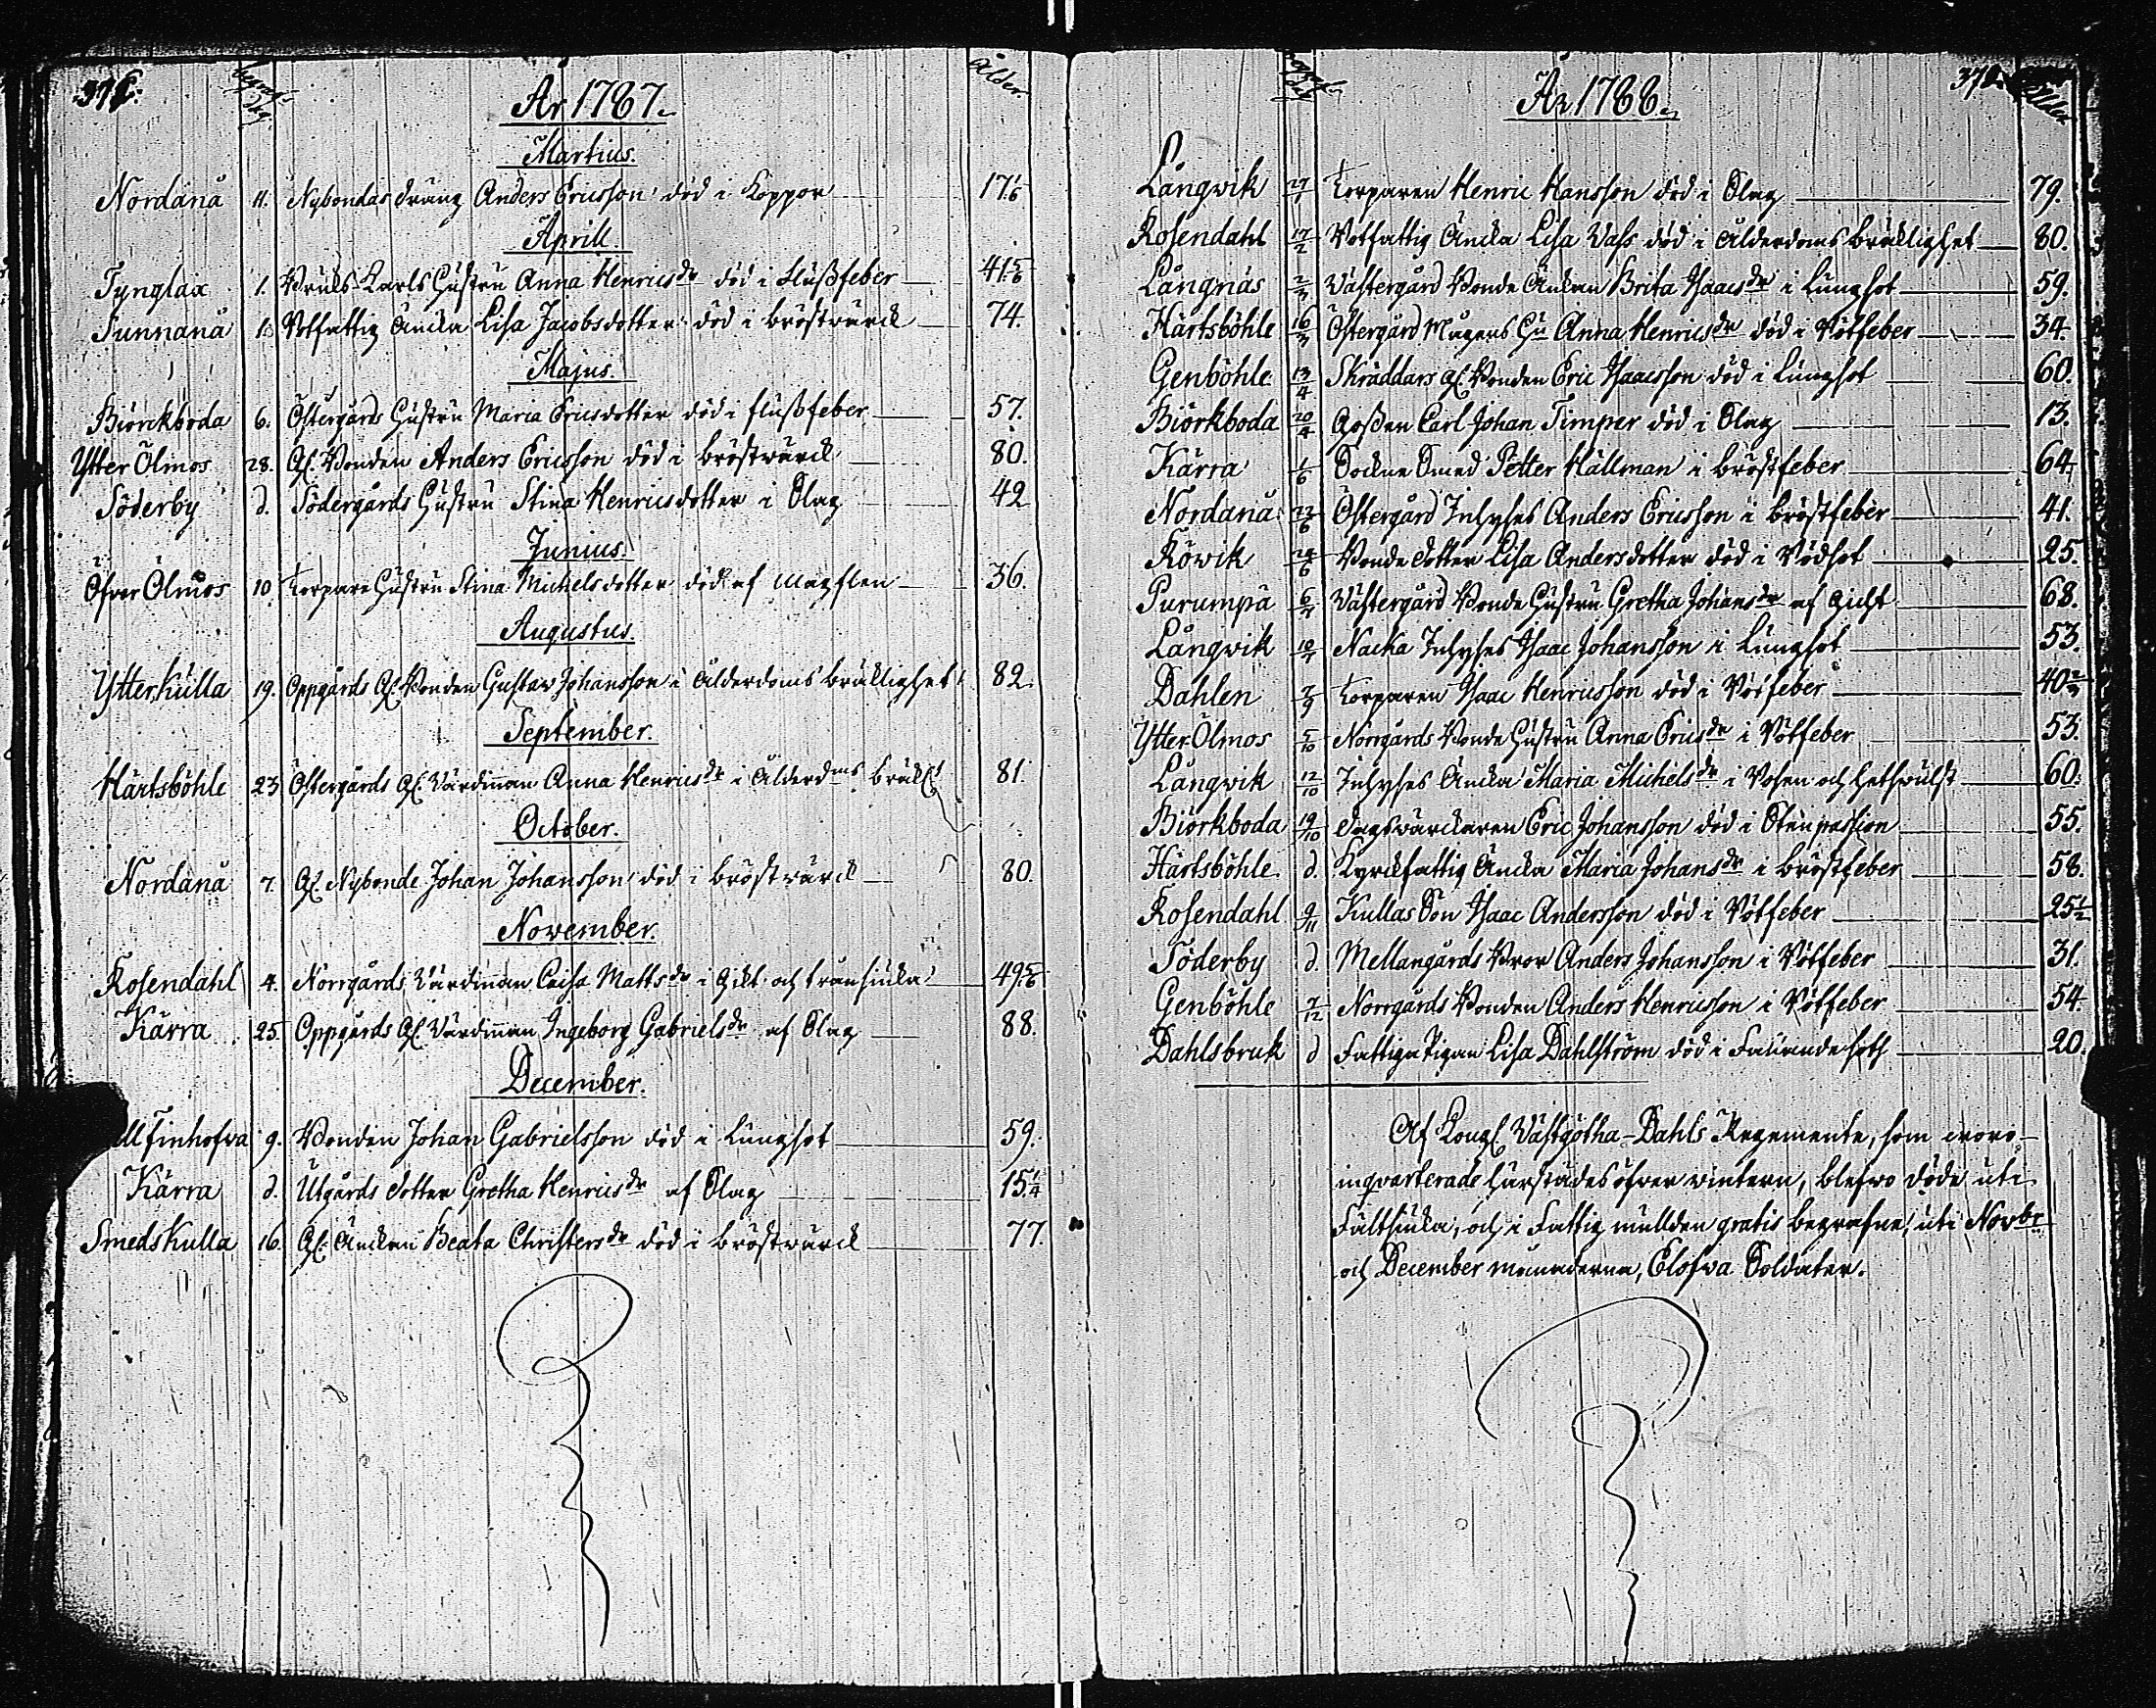 376.
begrafn: dag.
År 1787.
ålder.
Martius.
Nordanå 11. Nybondas dräng Anders Ericsson död i Koppor 17 1/6
Aprill.
Tynglax 1. Bruks-Karls Hustru Anna Henricsdr död i Flussfeber 41 5/6
Sunnanå Rotfattig Änckia Lisa Jacobsdotter död i bröstwärck 74.
Majus.
Biörckboda 6. Östergårds Hustru Maria Ericsdotter död i flussfeber 57.
Ytter Ölmos 28. Gl. Bonden Anders Ericsson död i bröstwärck 80.
Söderby d. Södergårds Hustru Stina Henricsdotter i Slag 42
Junius.
Öfver Ölmos 10. Torpare Hustru Stina Michelsdotter död af 36.
Augustus.
Ytterkulla 19. Oppgårds Gl. Bonden Gustav Johansson i Ålderdoms bräcklighet 82
September.
Härtsböhle 23 Östergårds Gl. Värdinnan Anna Henricsdr i Ålderdms bräckl: 81.
October.
Nordanå 7. Gl. Nybonde Johan Johansson död i bröstwärck 80.
November.
Rosendahl 4. Norrgårds Värdinnan Caisa Mattsdr i Gikt och tränsiuka 49 5/6
Kärra 25. Oppgårds Gl. Värdinnan Ingeborg Gabrielsdr af Slag 88.
December.
Finhofva 9. Bonden Johan Gabrielsson död i Lungsot 59.
Kärra d. Utgårds dotter Gretha Henricsdr af Slag 15 1/4
Smedskulla 16. Gl. Änckan Beata Christersdr död i bröstwärck 77.
År 1788.
Långvik 27/1 Torparen Henric Hansson död i Slag 79.
Rosendahl 17/2 Rotfattig Änckia Lisa Vass död i Ålderdoms bräcklighet 80.
Långnäs 2/3 Västergård Bonde Änckan Brita Isacsdr i Lungsot 59.
Härtsböhle 16/3 Östergård Mågens Hu Anna Henricsdr död i Rötfeber 34.
Genböhle 13/4 Skräddars gl. Bonden Eric Isaacsson död i Lungsot 60.
Biörkboda 20/4 Gossen Carl Johan Timper död i Slag 13.
Kärra 1/6 Sockne Smed Petter Hällman i bröstfeber 64.
Nordanå 22/6 Östergård Inhyses Anders Ericsson i bröstfeber 41.
Rövik 24/6 Bonde dotter Lisa Andersdotter död i Rödsot 25.
Purumpä 6/7 Västergård Bonde Hustru Gretha Johansdr af Gickt 68.
Långvik 10/7 Nacka Inhyses Isaac Johansson i Lungsot 53.
Dahlen Torparen Isaac Henricsson död i Rötfeber 40 2/3
Ytter-Ölmos 5/10 Norrgårds Bonde Hustru Anna Ericsdr i Rötfeber 53.
Långvik 12/10 Inhyses Änckia Maria Michelsdr i Rosen och hetswulst 60.
Biörkboda 19/10 Dagsvärckaren Eric Johansson död i Stenpassion 55.
Härtsböhle d. Kyrckfattig Änckia Maria Johansdr i bröstfeber 58.
Rosendahl 9/11 Kullas Son Isaac Andersson död i Rötfeber 25 1/2
Söderby d. Mellangårds Bror Anders Johansson i Rötfeber 31.
Genböhle 7/12 Norrgårds Bonden Anders Henricsson i Rötfeber 54
Dahlsbruk d Fattiga Pigan Lisa Dahlström död i Fallandesoth 20.
Af Kongl. Västgötha-Dahls Regemente, som woro
inqvarterade härstädes öfver wintern, blefwo döde uti
Fältsiuka, och i Fattig mullden gratis begrafne, uti Novbr
och December månaderna, Elofva Soldater.